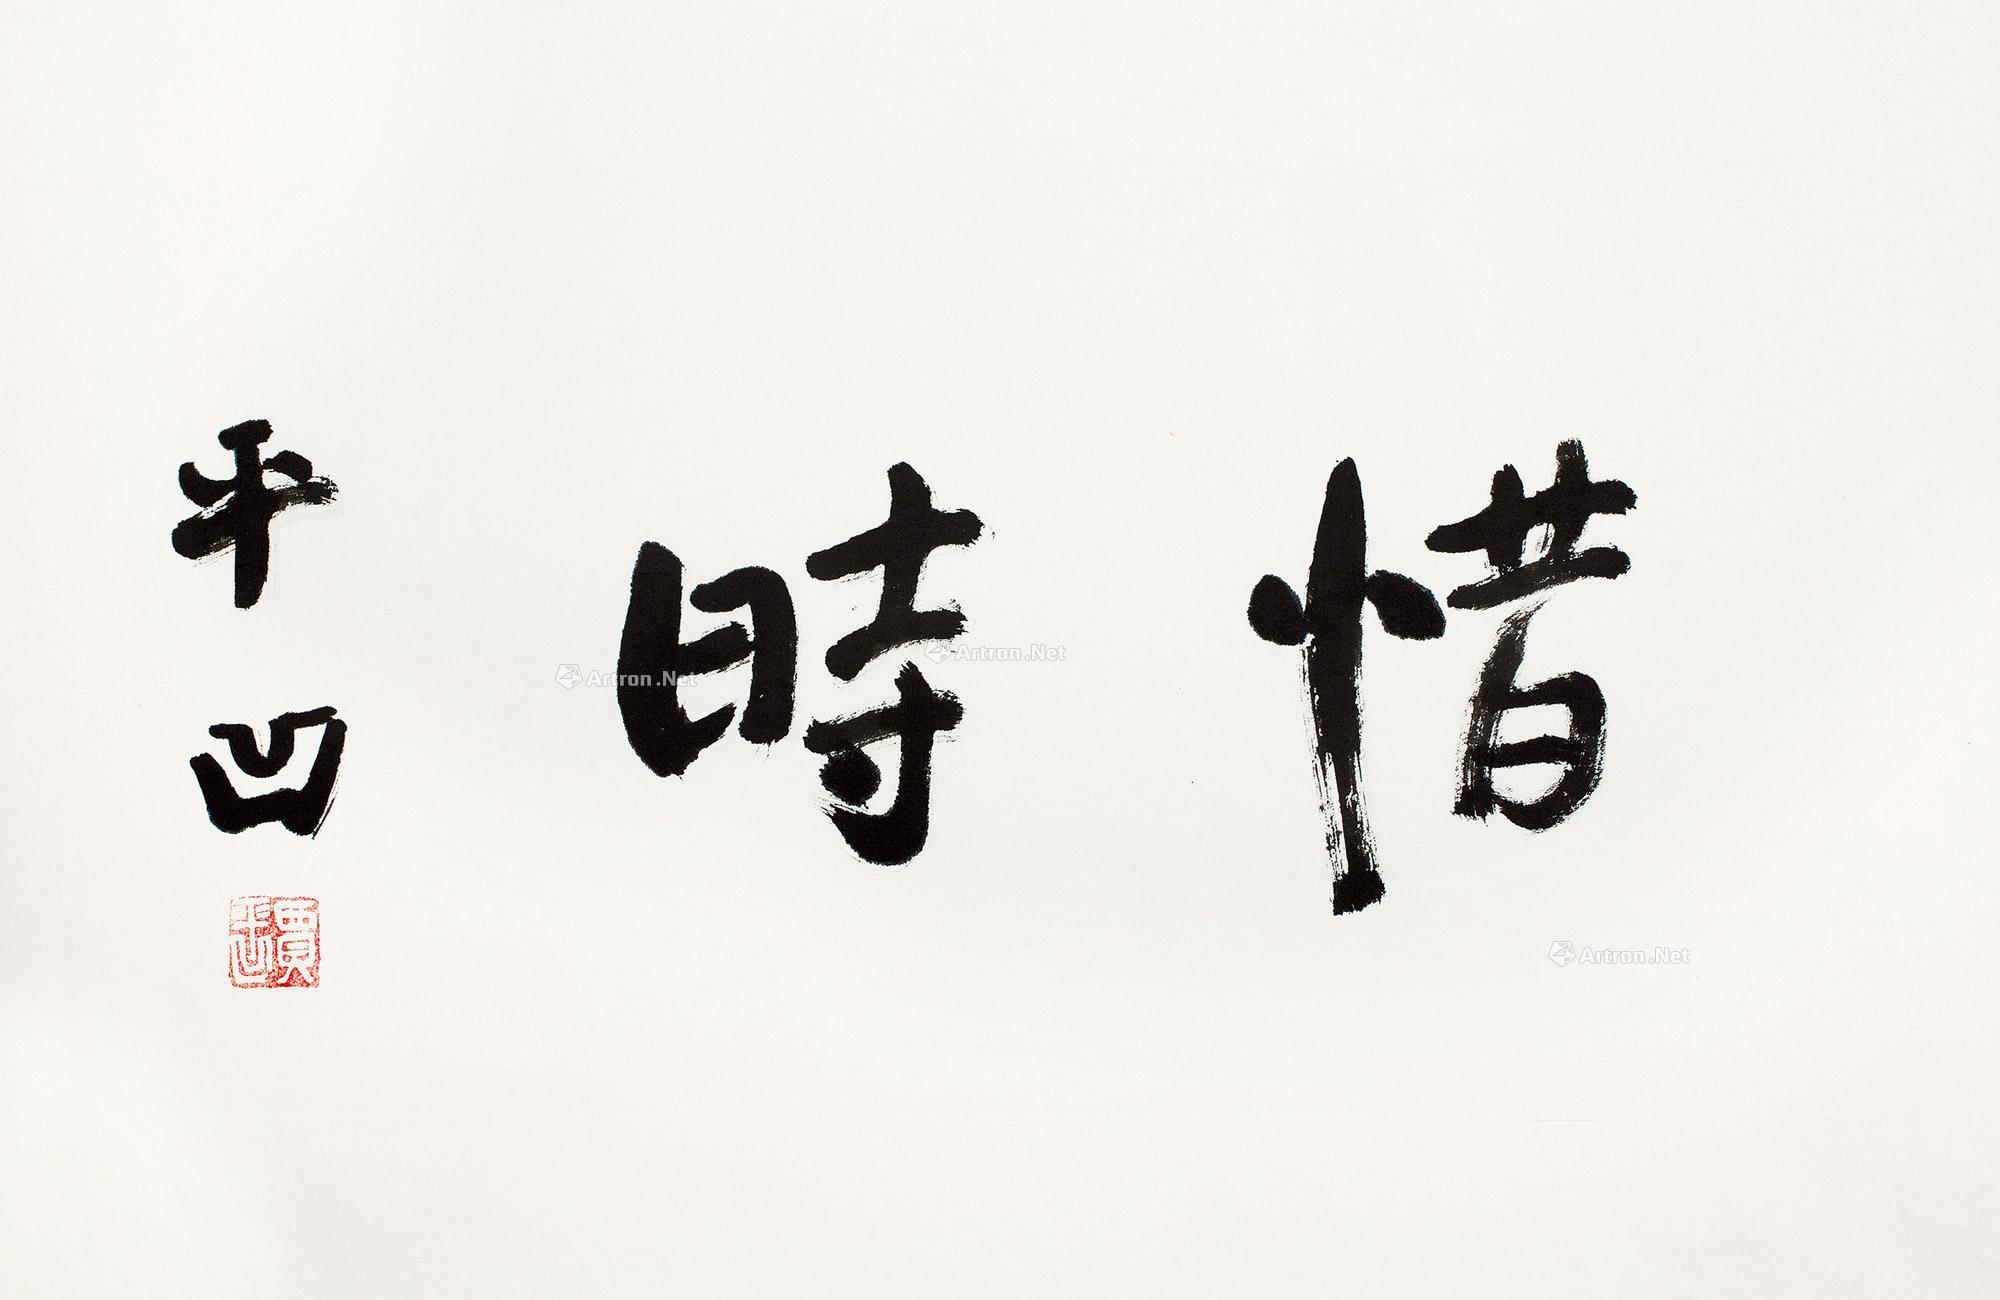 惜時
平凹
賈平凹
Artron.Net
Artron.Net
Artron.Net